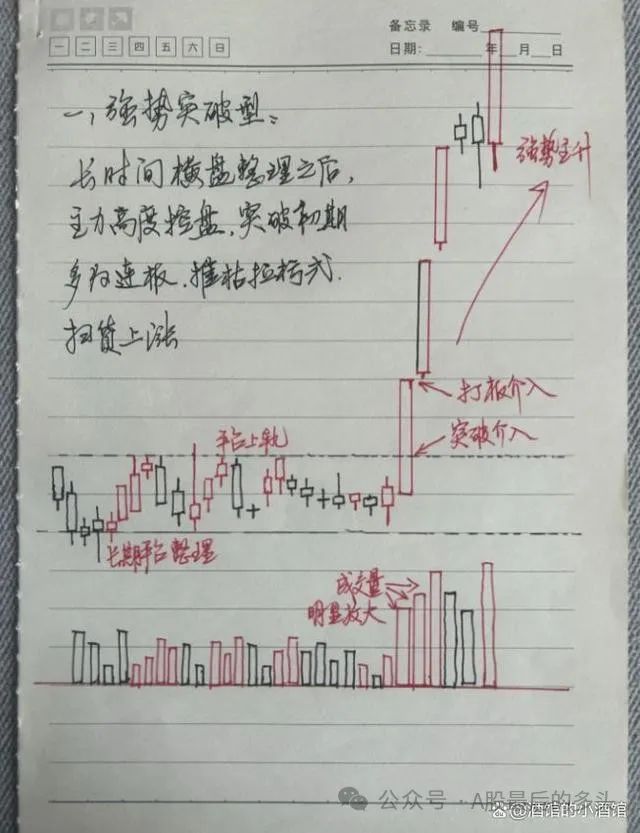 备忘录 编号
一 二 三 四 五 六 日
日期: 年 月 日
一、强势突破型:
长时间横盘整理之后,
主力高度控盘,突破初期
多为连板,摧枯拉朽式
扫货上涨
强势主升
打板介入
突破介入
平台上轨
长期平台整理
成交量
明显放大
公众号·A股最后的条头
@酒馆的小酒馆